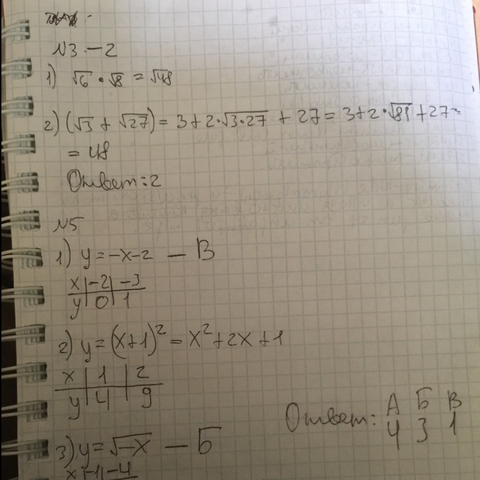 N3. – 2
1) √6 · √8 = √48
2) (√3 + √27) = 3 + 2·√3·27 + 27 = 3 + 2·√81 + 27 =
= 48
Ответ: 2
N5
1) y = -x-2 — В
x | -2 | -3
y | 0 | 1
2) y = (x+1)² = x² + 2x + 1
x | 1 | 2
y | 4 | 9
Ответ: А Б В
4 3 1
3) y = √-x — Б
x | -1 | -4